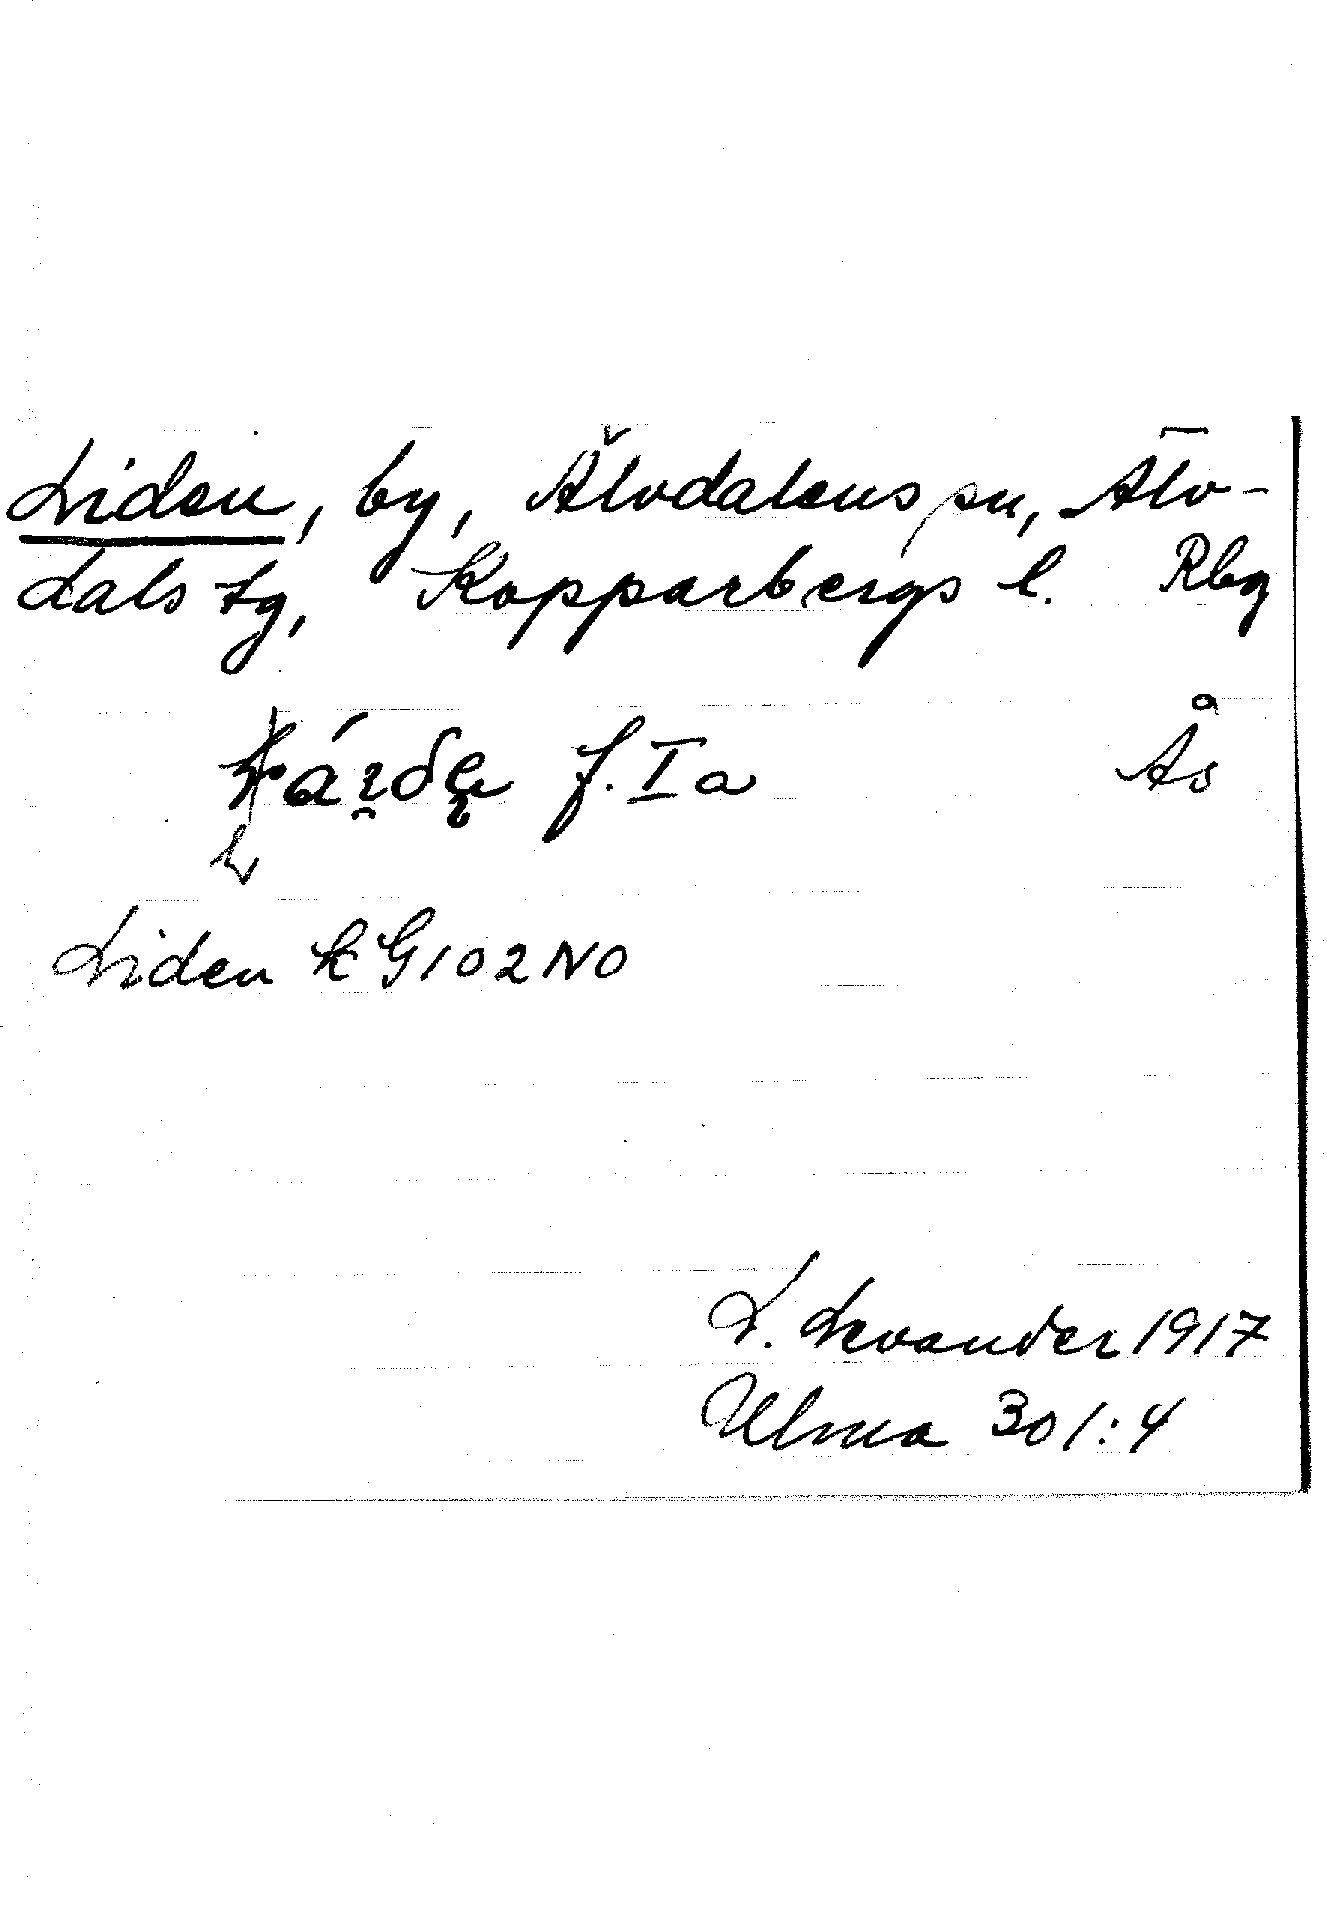 Liden, by, Älvdalens sn, Älv-
dals tg, Kopparbergs l. Rbg
f. Ia Ås
Liden kG102NO
L. Levander 1917
Ulma 301:4